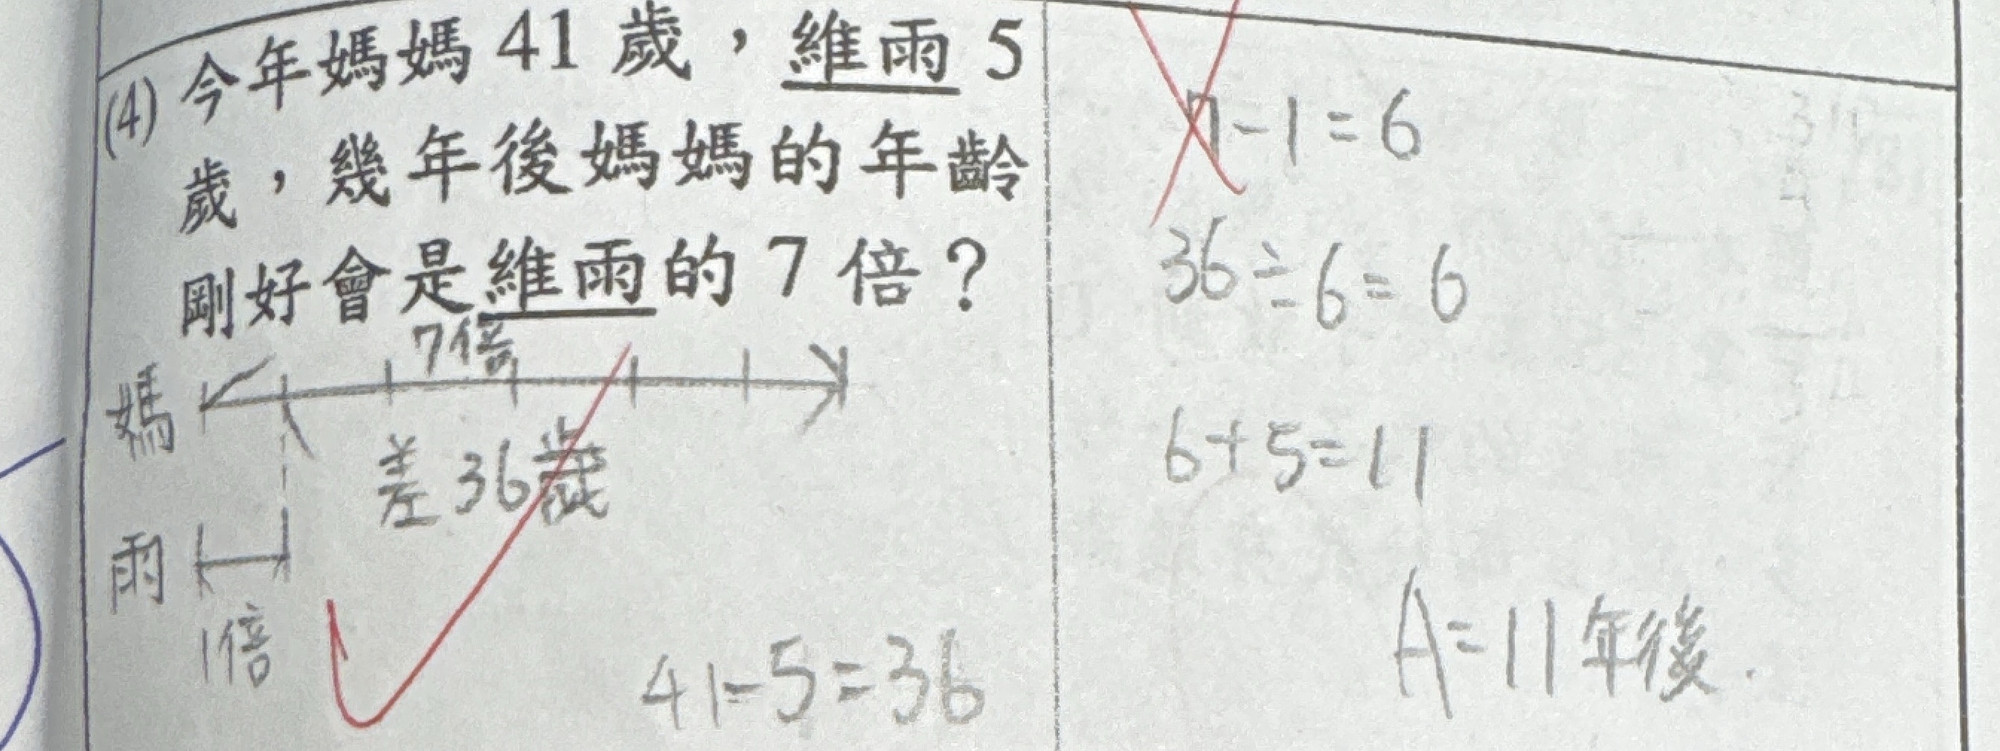 (4) 今年媽媽 41 歲，維雨 5
歲，幾年後媽媽的年齡
剛好會是維雨的 7 倍？
7倍
媽
差36歲
雨
1倍
41-5=36
7-1=6
36÷6=6
6+5=11
A=11年後.